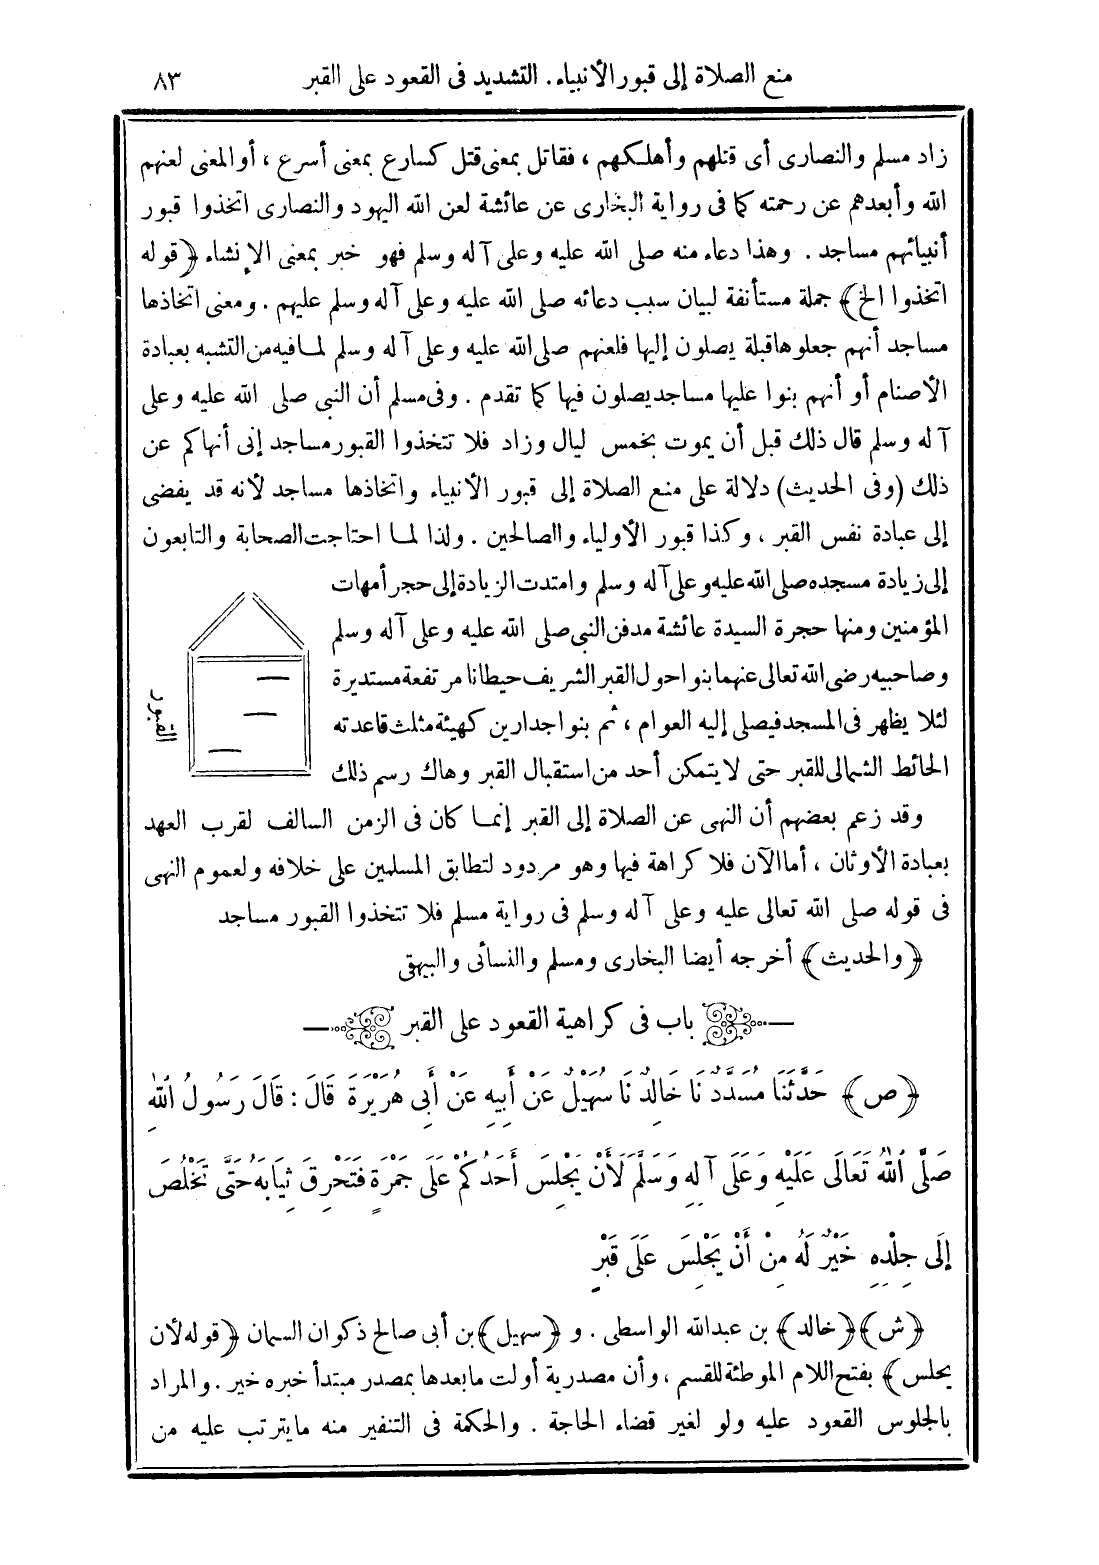 منع الصلاة إلى قبور الأنبياء. التشديد فى القعود على القبر ٨٣
زاد مسلم والنصارى أى قتلهم وأهلكهم ، فقاتل بمعنى قتل كسارع بمعنى أسرع ، أو المعنى لعنهم
الله وأبعدهم عن رحمته كما فى رواية البخارى عن عائشة لعن الله اليهود والنصارى اتخذوا قبور
أنبيائهم مساجد . وهذا دعاء منه صلى الله عليه وعلى آله وسلم فهو خبر بمعنى الإنشاء ﴿قوله
اتخذوا الخ﴾ جملة مستأنفة لبيان سبب دعائه صلى الله عليه وعلى آله وسلم عليهم . ومعنى اتخاذها
مساجد أنهم جعلوها قبلة يصلون إليها فلعنهم صلى الله عليه وعلى آله وسلم لما فيه من التشبه بعبادة
الأصنام أو أنهم بنوا عليها مساجد يصلون فيها كما تقدم . وفى مسلم أن النبى صلى الله عليه وعلى
آله وسلم قال ذلك قبل أن يموت بخمس ليال وزاد فلا تتخذوا القبور مساجد إنى أنهاكم عن
ذلك (وفى الحديث) دلالة على منع الصلاة إلى قبور الأنبياء واتخاذها مساجد لأنه قد يفضى
إلى عبادة نفس القبر ، وكذا قبور الأولياء والصالحين . ولذا لما احتاجت الصحابة والتابعون
إلى زيادة مسجده صلى الله عليه وعلى آله وسلم وامتدت الزيادة إلى حجر أمهات
المؤمنين ومنها حجرة السيدة عائشة مدفن النبى صلى الله عليه وعلى آله وسلم
وصاحبيه رضى الله تعالى عنهما بنوا حول القبر الشريف حيطانا مرتفعة مستديرة
لئلا يظهر فى المسجد فيصلى إليه العوام ، ثم بنوا جدارين كهيئة مثلث قاعدته
الحائط الشمالى للقبر حتى لا يتمكن أحد من استقبال القبر وهاك رسم ذلك
القبور
وقد زعم بعضهم أن النهى عن الصلاة إلى القبر إنما كان فى الزمن السالف لقرب العهد
بعبادة الأوثان ، أما الآن فلا كراهة فيها وهو مردود لتطابق المسلمين على خلافه ولعموم النهى
فى قوله صلى الله تعالى عليه وعلى آله وسلم فى رواية مسلم فلا تتخذوا القبور مساجد
﴿والحديث﴾ أخرجه أيضا البخارى ومسلم والنسائى والبيهقى
باب فى كراهية القعود على القبر
﴿ص﴾ حَدَّثَنَا مُسَدَّدٌ نَا خَالِدٌ نَا سُهَيْلٌ عَنْ أَبِيهِ عَنْ أَبِى هُرَيْرَةَ قَالَ : قَالَ رَسُولُ اللهِ
صَلَّى اللهُ تَعَالَى عَلَيْهِ وَعَلَى آلِهِ وَسَلَّمَ لَأَنْ يَجْلِسَ أَحَدُكُمْ عَلَى جَمْرَةٍ فَتَحْرِقَ ثِيَابَهُ حَتَّى تَخْلُصَ
إِلَى جِلْدِهِ خَيْرٌ لَهُ مِنْ أَنْ يَجْلِسَ عَلَى قَبْرٍ
﴿ش﴾ ﴿خالد﴾ بن عبدالله الواسطى . و ﴿سهيل﴾ بن أبى صالح ذكوان السمان ﴿قوله لأن
يجلس﴾ بفتح اللام الموطئة للقسم ، وأن مصدرية أولت ما بعدها بمصدر مبتدأ خبره خير . والمراد
بالجلوس القعود عليه ولو لغير قضاء الحاجة . والحكمة فى التنفير منه ما يترتب عليه من